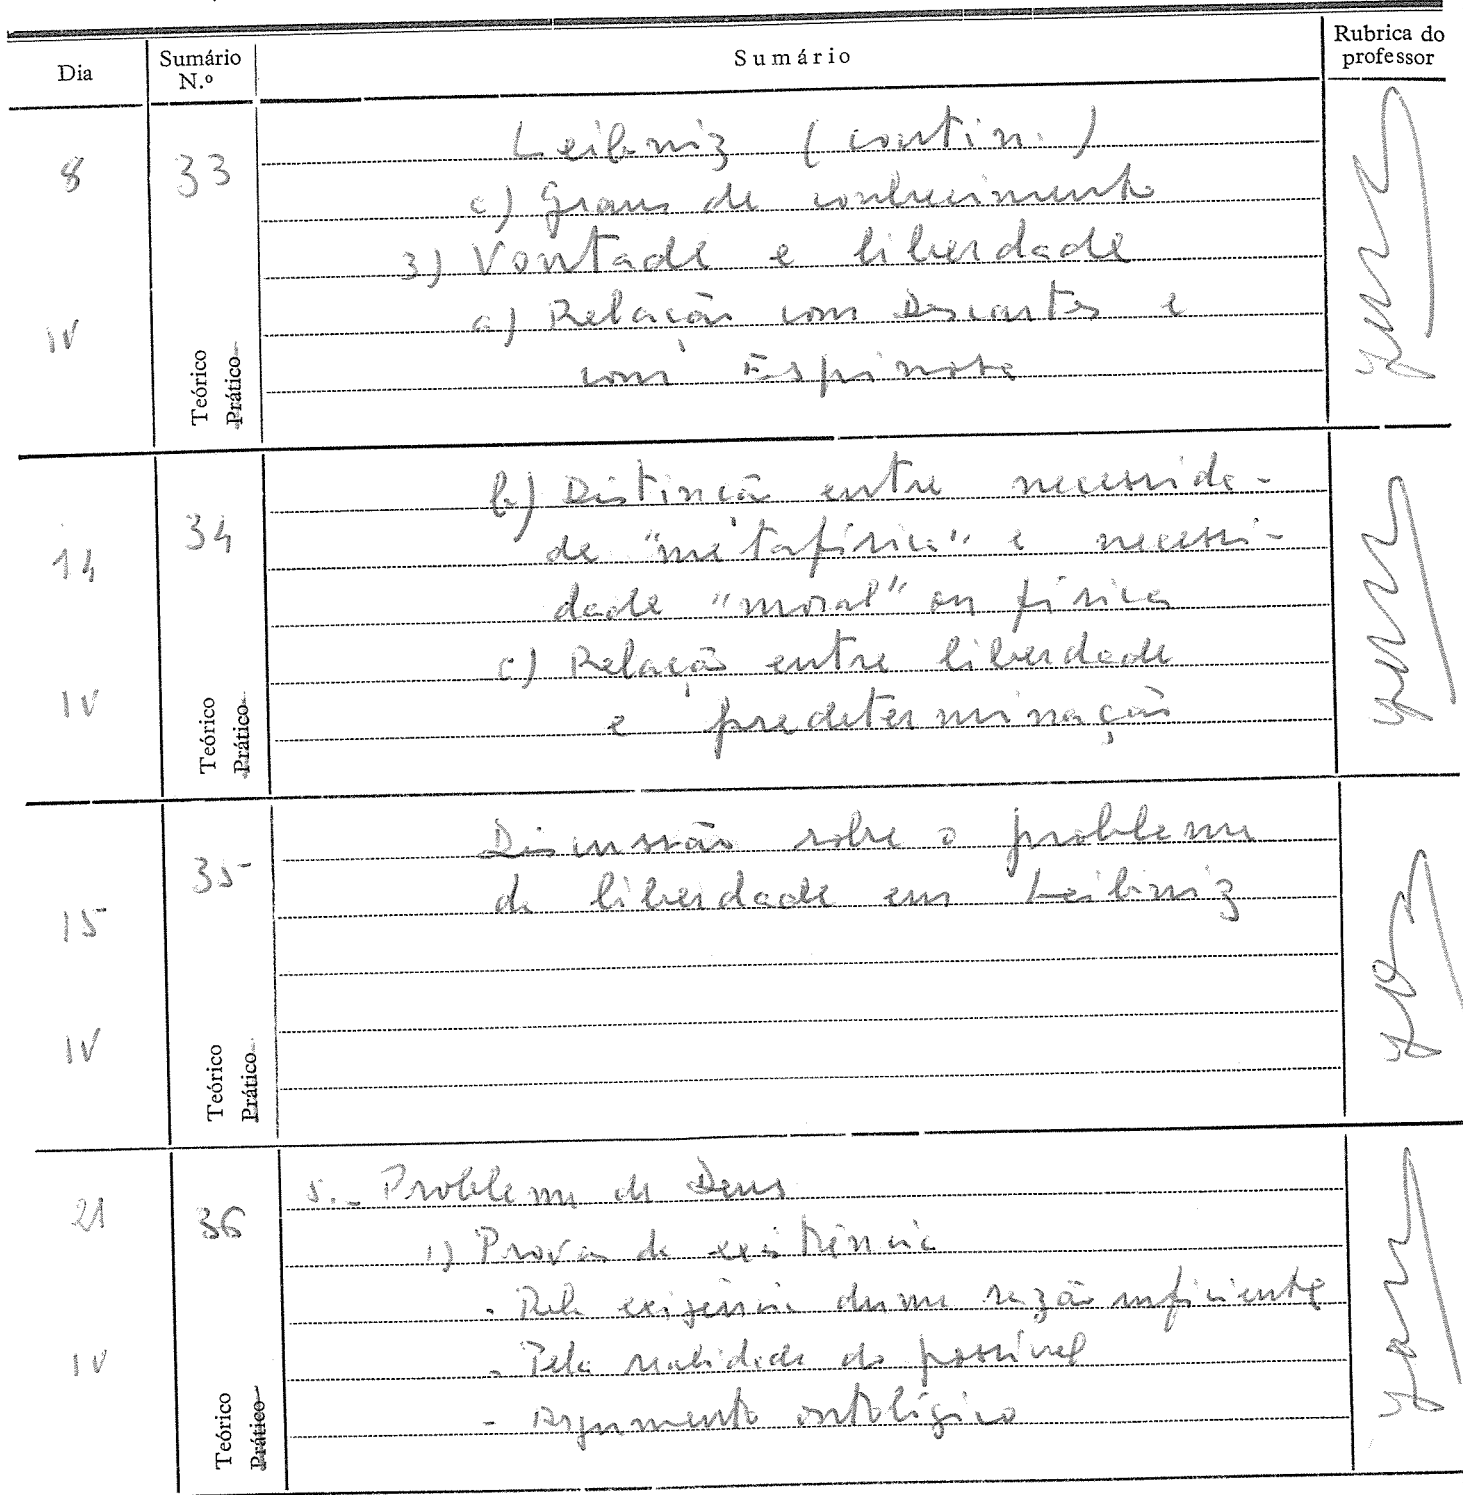 Dia
Sumário N.º
Sumário
Rubrica do professor
8
IV
33
Teórico
Prático
Leibniz (contin.)
c) Graus de conhecimento
3) Vontade e liberdade
a) Relação com Descartes e
com Espinosa
14
IV
34
Teórico
Prático
b) Distinção entre necessida-
de "metafísica" e necessi-
dade "moral" ou física
c) Relação entre liberdade
e predeterminação
15
IV
35
Teórico
Prático
Discussão sobre o problema
da liberdade em Leibniz
21
IV
36
Teórico
Prático
5.- Problema de Deus
1) Provas da existência
- Pela exigência duma razão suficiente
- Pela realidade do possível
- Argumento ontológico